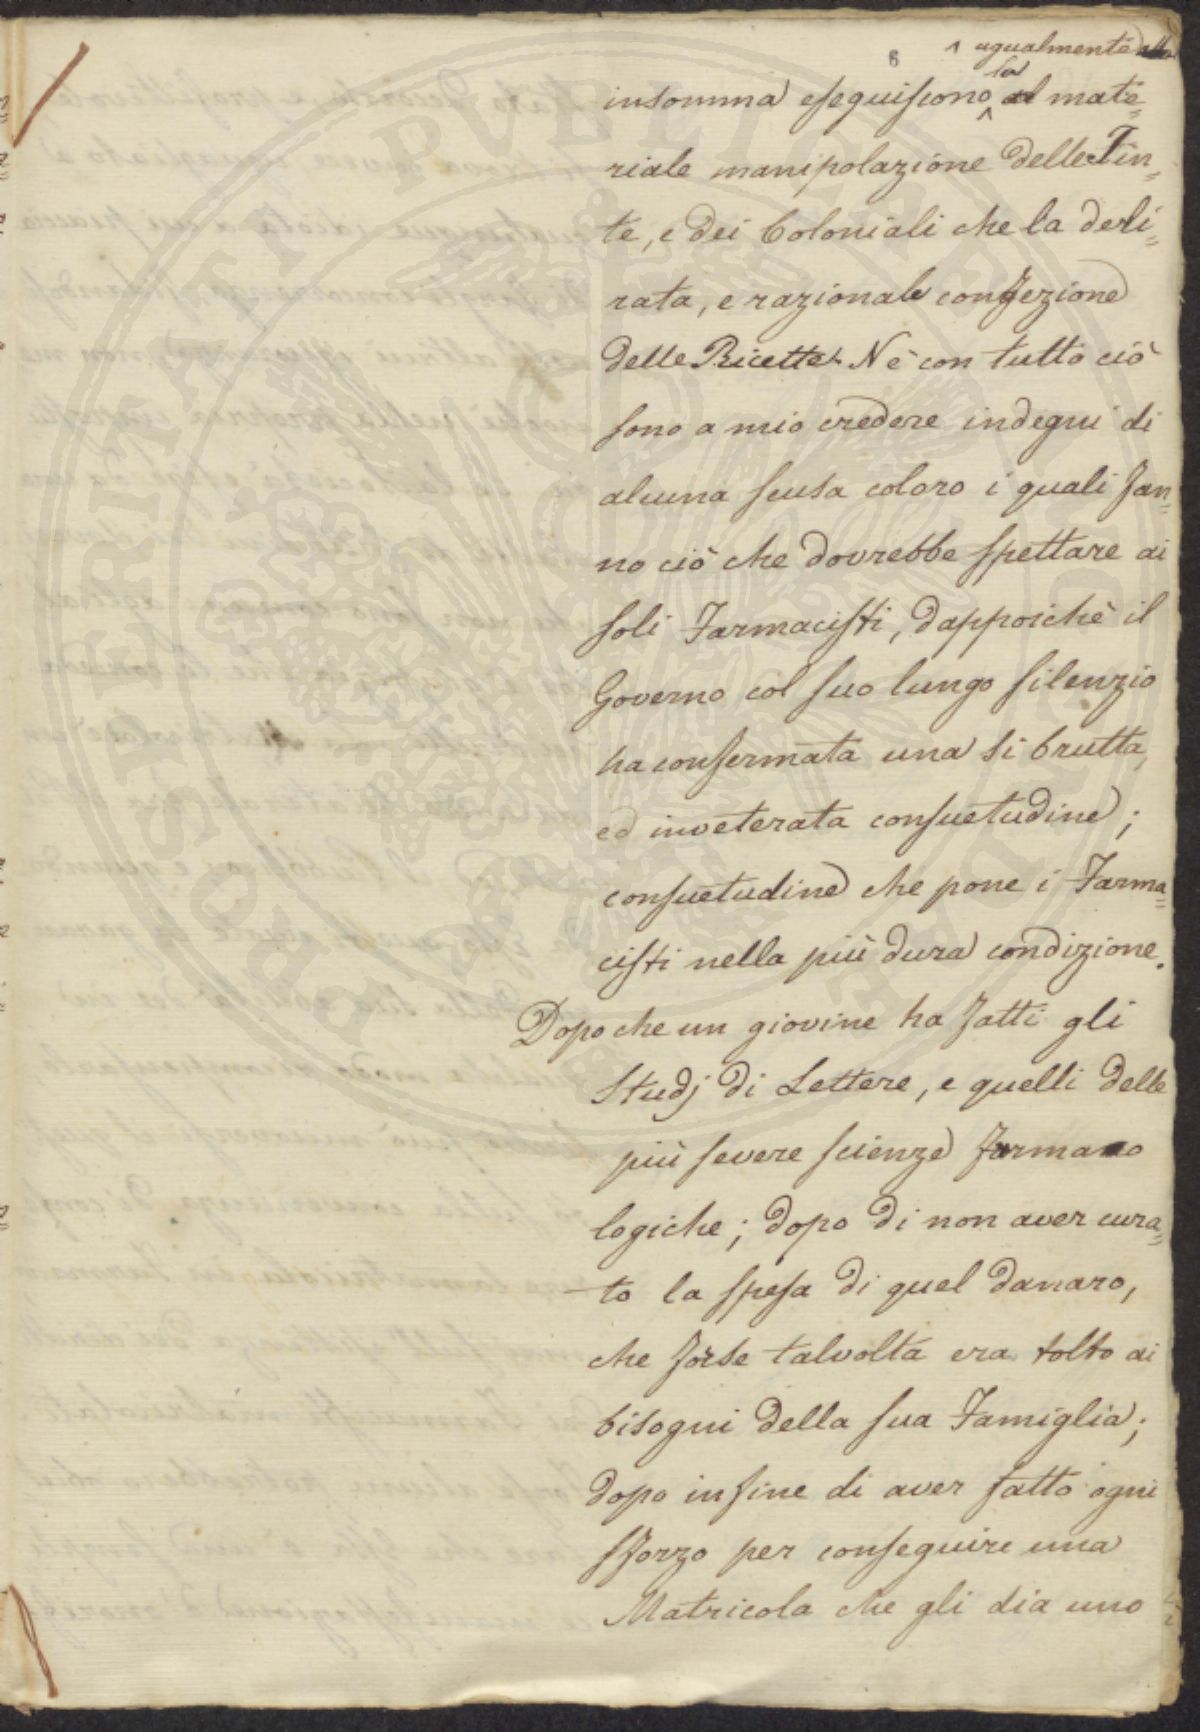 8
^ ugualmente
insomma eseguiscono la mate=
riale manipolazione delle Tin=
te, e dei Coloniali che la deli=
rata, e razionale confezione
delle Ricette. Nè con tutto ciò
sono a mio credere indegni di
alcuna scusa coloro i quali fan=
no ciò che dovrebbe spettare ai
soli Farmacisti, dappoichè il
Governo col suo lungo silenzio
ha confermata una si brutta,
ed inveterata consuetudine;
consuetudine che pone i Farma=
cisti nella più dura condizione.
Dopo che un giovine ha fatti gli
Studj di Lettere, e quelli delle
più severe scienze farmaco
logiche; dopo di non aver cura=
to la spesa di quel danaro,
che forse talvolta era tolto ai
bisogni della sua Famiglia;
dopo infine di aver fatto ogni
sforzo per conseguire una
Matricola che gli dia uno
PUBLICAE
PROSPERITATI